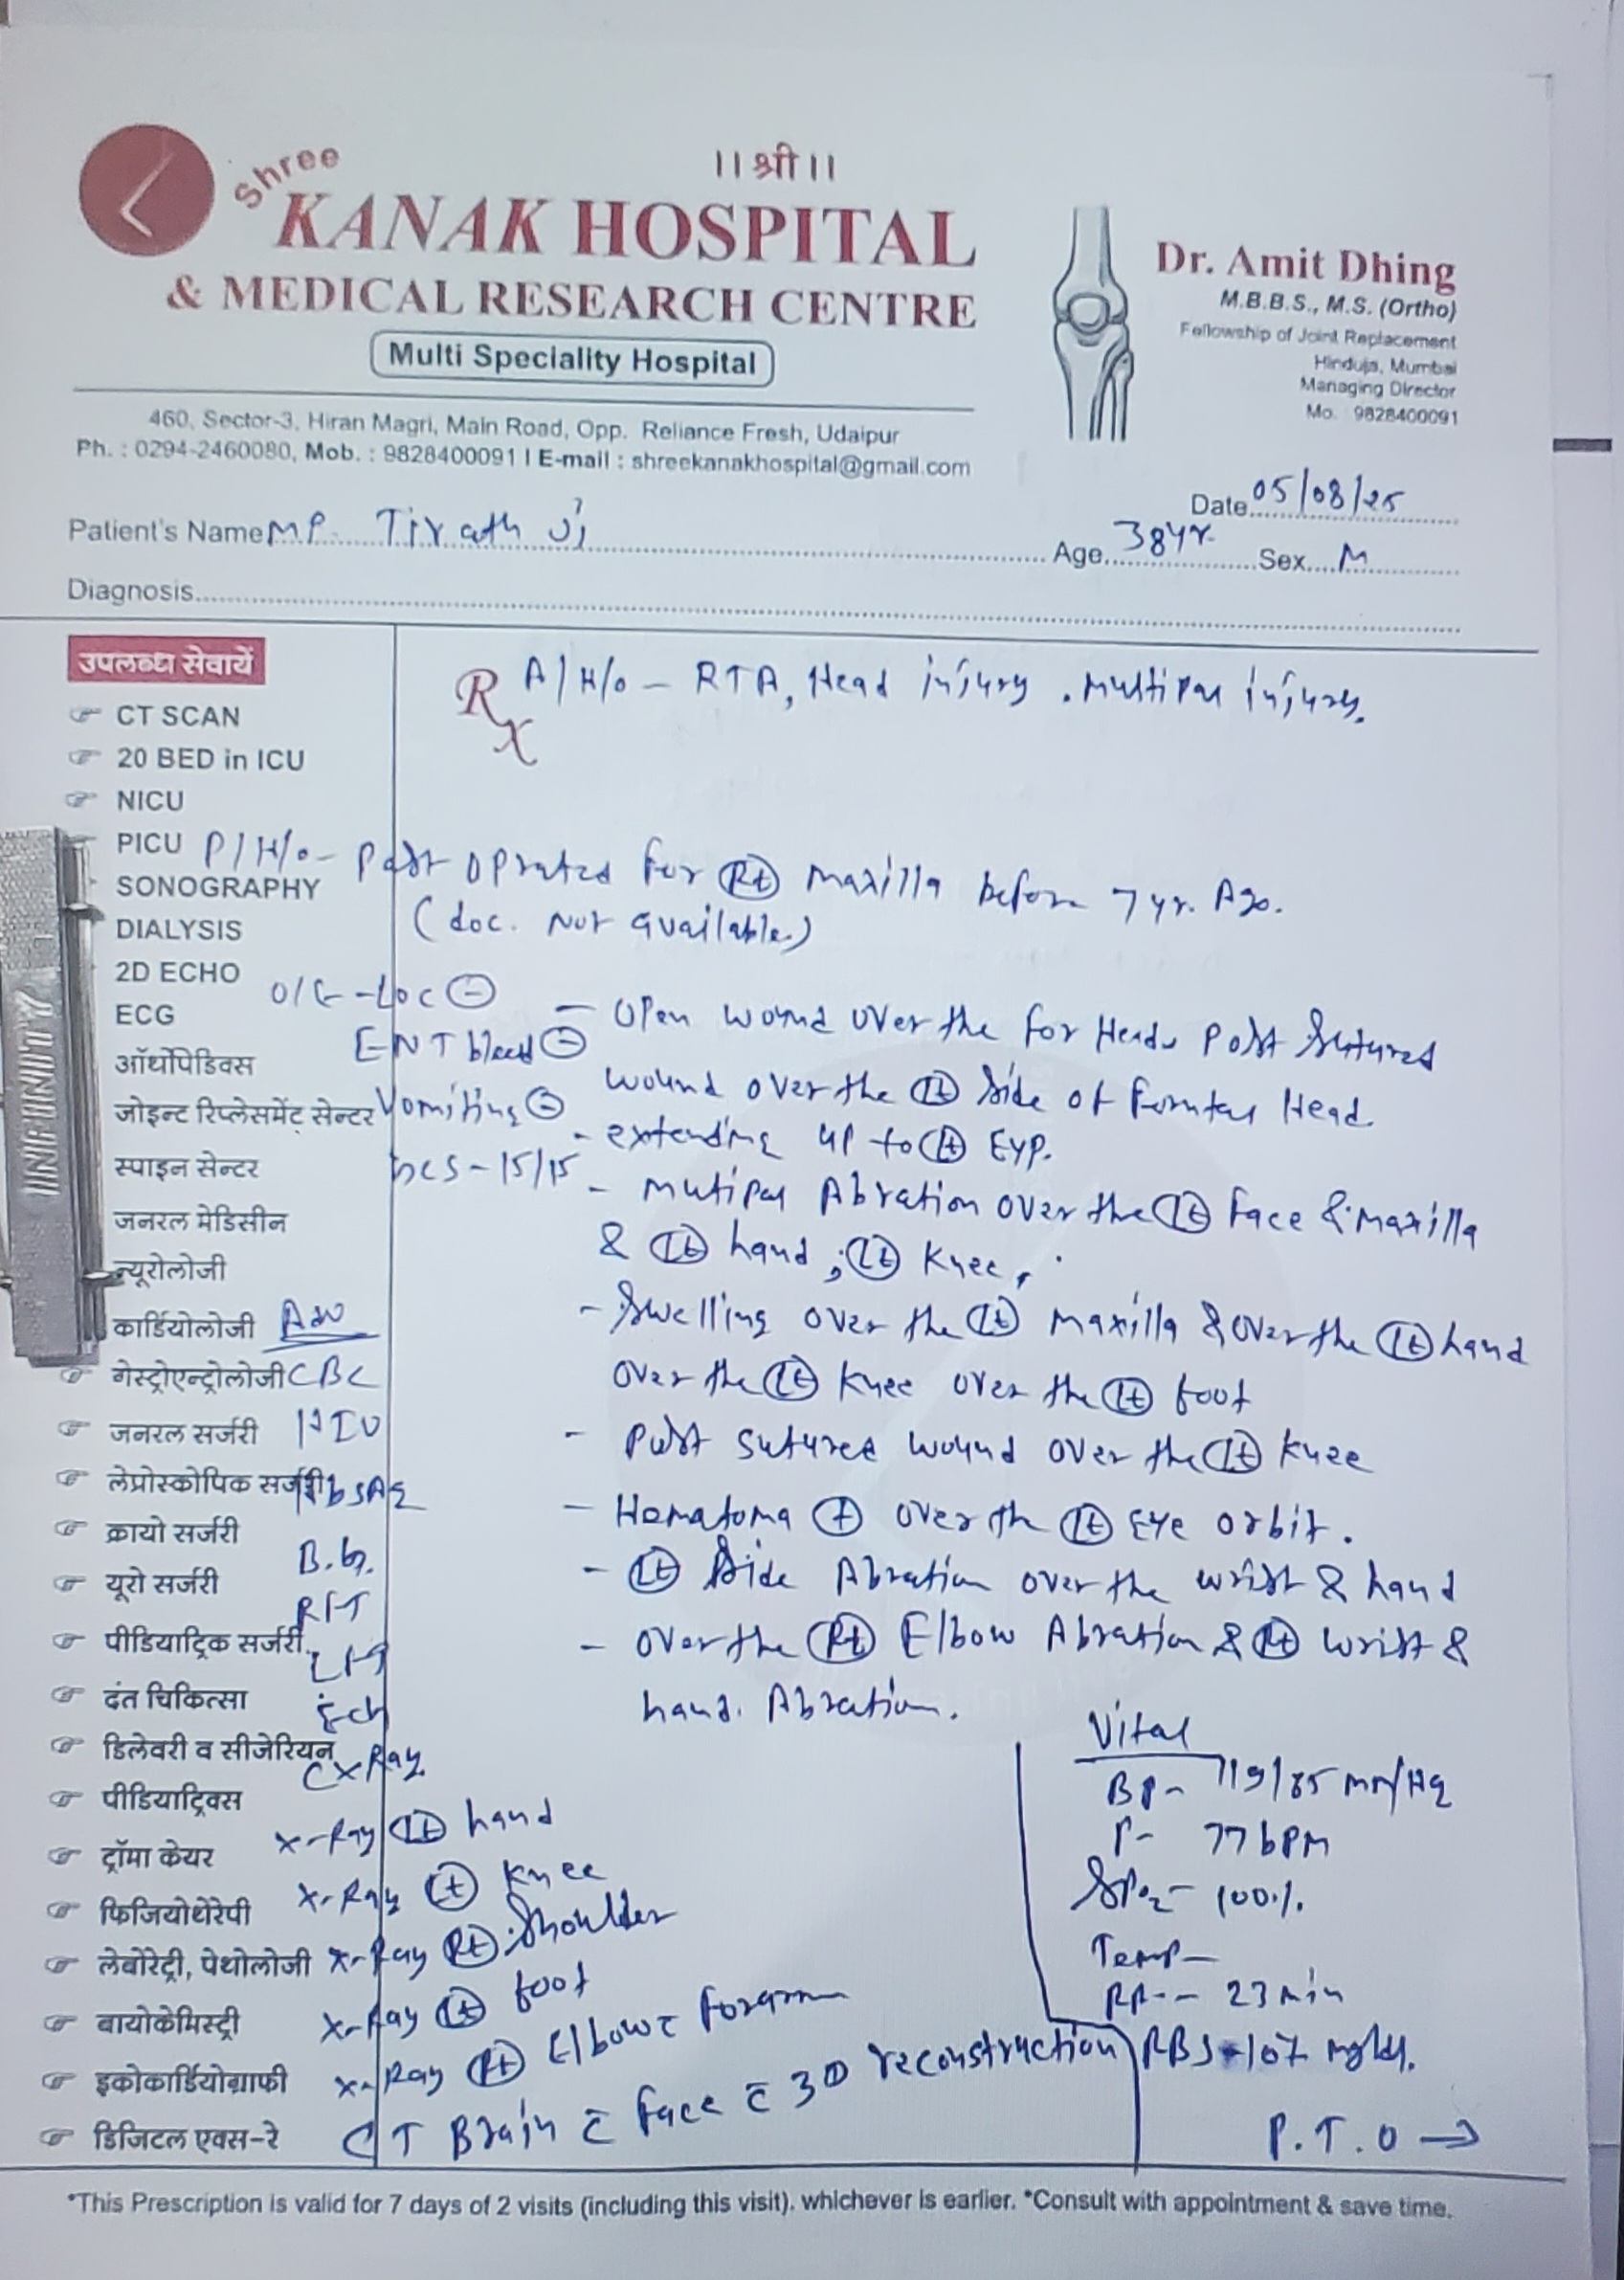 ।। श्री ।।
Shree
KANAK HOSPITAL
& MEDICAL RESEARCH CENTRE
Multi Speciality Hospital
460, Sector-3, Hiran Magri, Main Road, Opp. Reliance Fresh, Udaipur
Ph. : 0294-2460080, Mob. : 9828400091 I E-mail : shreekanakhospital@gmail.com
Dr. Amit Dhing
M.B.B.S., M.S. (Ortho)
Fellowship of Joint Replacement
Hinduja, Mumbai
Managing Director
Mo. 9828400091
Date 05/08/25
Patient's Name Mr. Tirath Ji Age 38yr. Sex M
Diagnosis
उपलब्ध सेवायें
CT SCAN
20 BED in ICU
NICU
PICU
SONOGRAPHY
DIALYSIS
2D ECHO
ECG
ऑर्थोपेडिक्स
जोइन्ट रिप्लेसमेंट सेन्टर
स्पाइन सेन्टर
जनरल मेडिसीन
न्यूरोलोजी
कार्डियोलोजी
गेस्ट्रोएन्ट्रोलोजी
जनरल सर्जरी
लेप्रोस्कोपिक सर्जरी
क्रायो सर्जरी
यूरो सर्जरी
पीडियाट्रिक सर्जरी
दंत चिकित्सा
डिलेवरी व सीजेरियन
पीडियाट्रिक्स
ट्रॉमा केयर
फिजियोथेरेपी
लेबोरेट्री, पेथोलोजी
बायोकेमिस्ट्री
इकोकार्डियोग्राफी
डिजिटल एक्स-रे
Rx A/H/o - RTA, Head injury. multipal injury.
P/H/o - Past oprated for Rt maxilla before 7 yr. Ago.
(doc. Not available)
O/E - LOC ⊖
ENT bleed ⊖
Vomiting ⊖
GCS - 15/15
- Open wound over the for Head, Post Sutured
wound over the Lt Side of Head.
- extending up to Lt Eye.
- Mutipal Abration over the Lt face & maxilla
& Lt hand, Lt Knee,
- Swelling over the Lt maxilla & over the Lt hand
over the Lt Knee over the Lt foot
- Post sutured wound over the Lt Knee
- Hematoma ⊕ over th Lt Eye orbit.
- Lt Side Abration over the wrist & hand
- over the Rt Elbow Abration & Rt wrist &
hand. Abration.
Adv
CBC
HIV
HbSAg
B.G.
RFT
LFT
C X Ray
X-Ray Lt hand
X-Ray Lt Knee
X-Ray Rt Shoulder
X-Ray Lt foot
X-Ray Rt Elbow c̄ Forarm
CT Brain c̄ face c̄ 3D reconstruction
Vital
BP - 119/85 mm/Hg
P - 77 bpm
SPO2 - 100%
Temp -
RR - 23 min
RBS - 107 mg/dl.
P.T.O →
*This Prescription is valid for 7 days of 2 visits (including this visit). whichever is earlier. *Consult with appointment & save time.
INFINITY